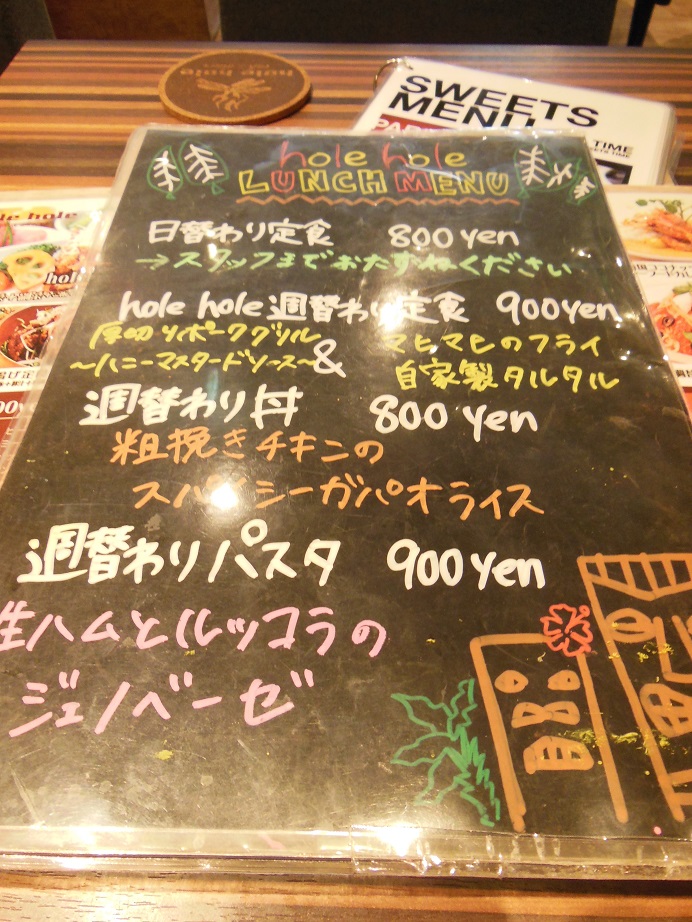 hole hole
SWEETS
MENU
TIME
hole hole
LUNCH MENU
日替わり定食 800yen
→スタッフまでおたずねください
hole hole 週替わり定食 900yen
厚切りポークグリル
～ハニーマスタードソース～ &
マヒマヒのフライ
自家製タルタル
週替わり丼 800yen
粗挽きチキンの
スパイシーガパオライス
週替わりパスタ 900yen
生ハムとルッコラの
ジェノベーゼ